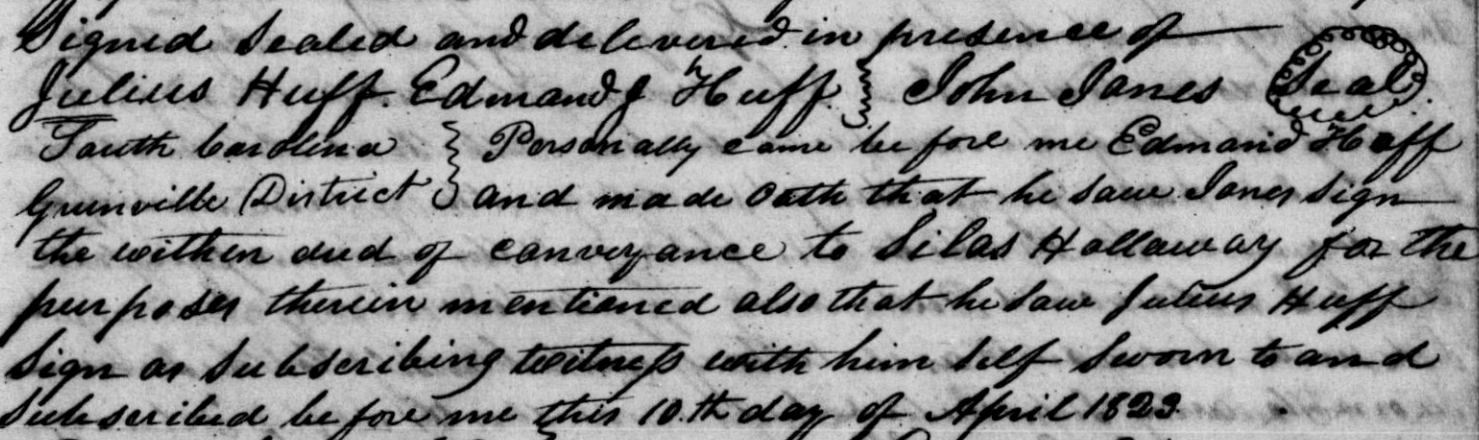 Signed Sealed and delivered in presence of
Julius Huff. Edmand J Huff } John Janes Seal
South Carolina } Personally came before me Edmand Huff
Greinville District } and made oath that he saw Janes Sign
the within deed of conveyance to Silas Hallaway for the
purposes therein mentioned also that he saw Julius Huff
Sign as Subscribing witness with him Self Sworn to and
Subscribed before me this 10th day of April 1823